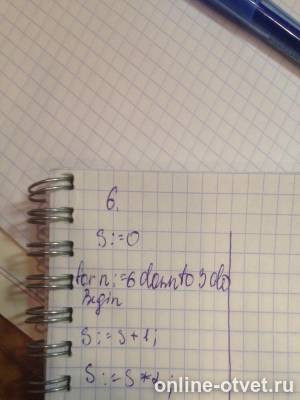 6.
S:=0
for n:=6 downto 3 do
Begin
S:=S+1;
S:=S*2;
online-otvet.ru